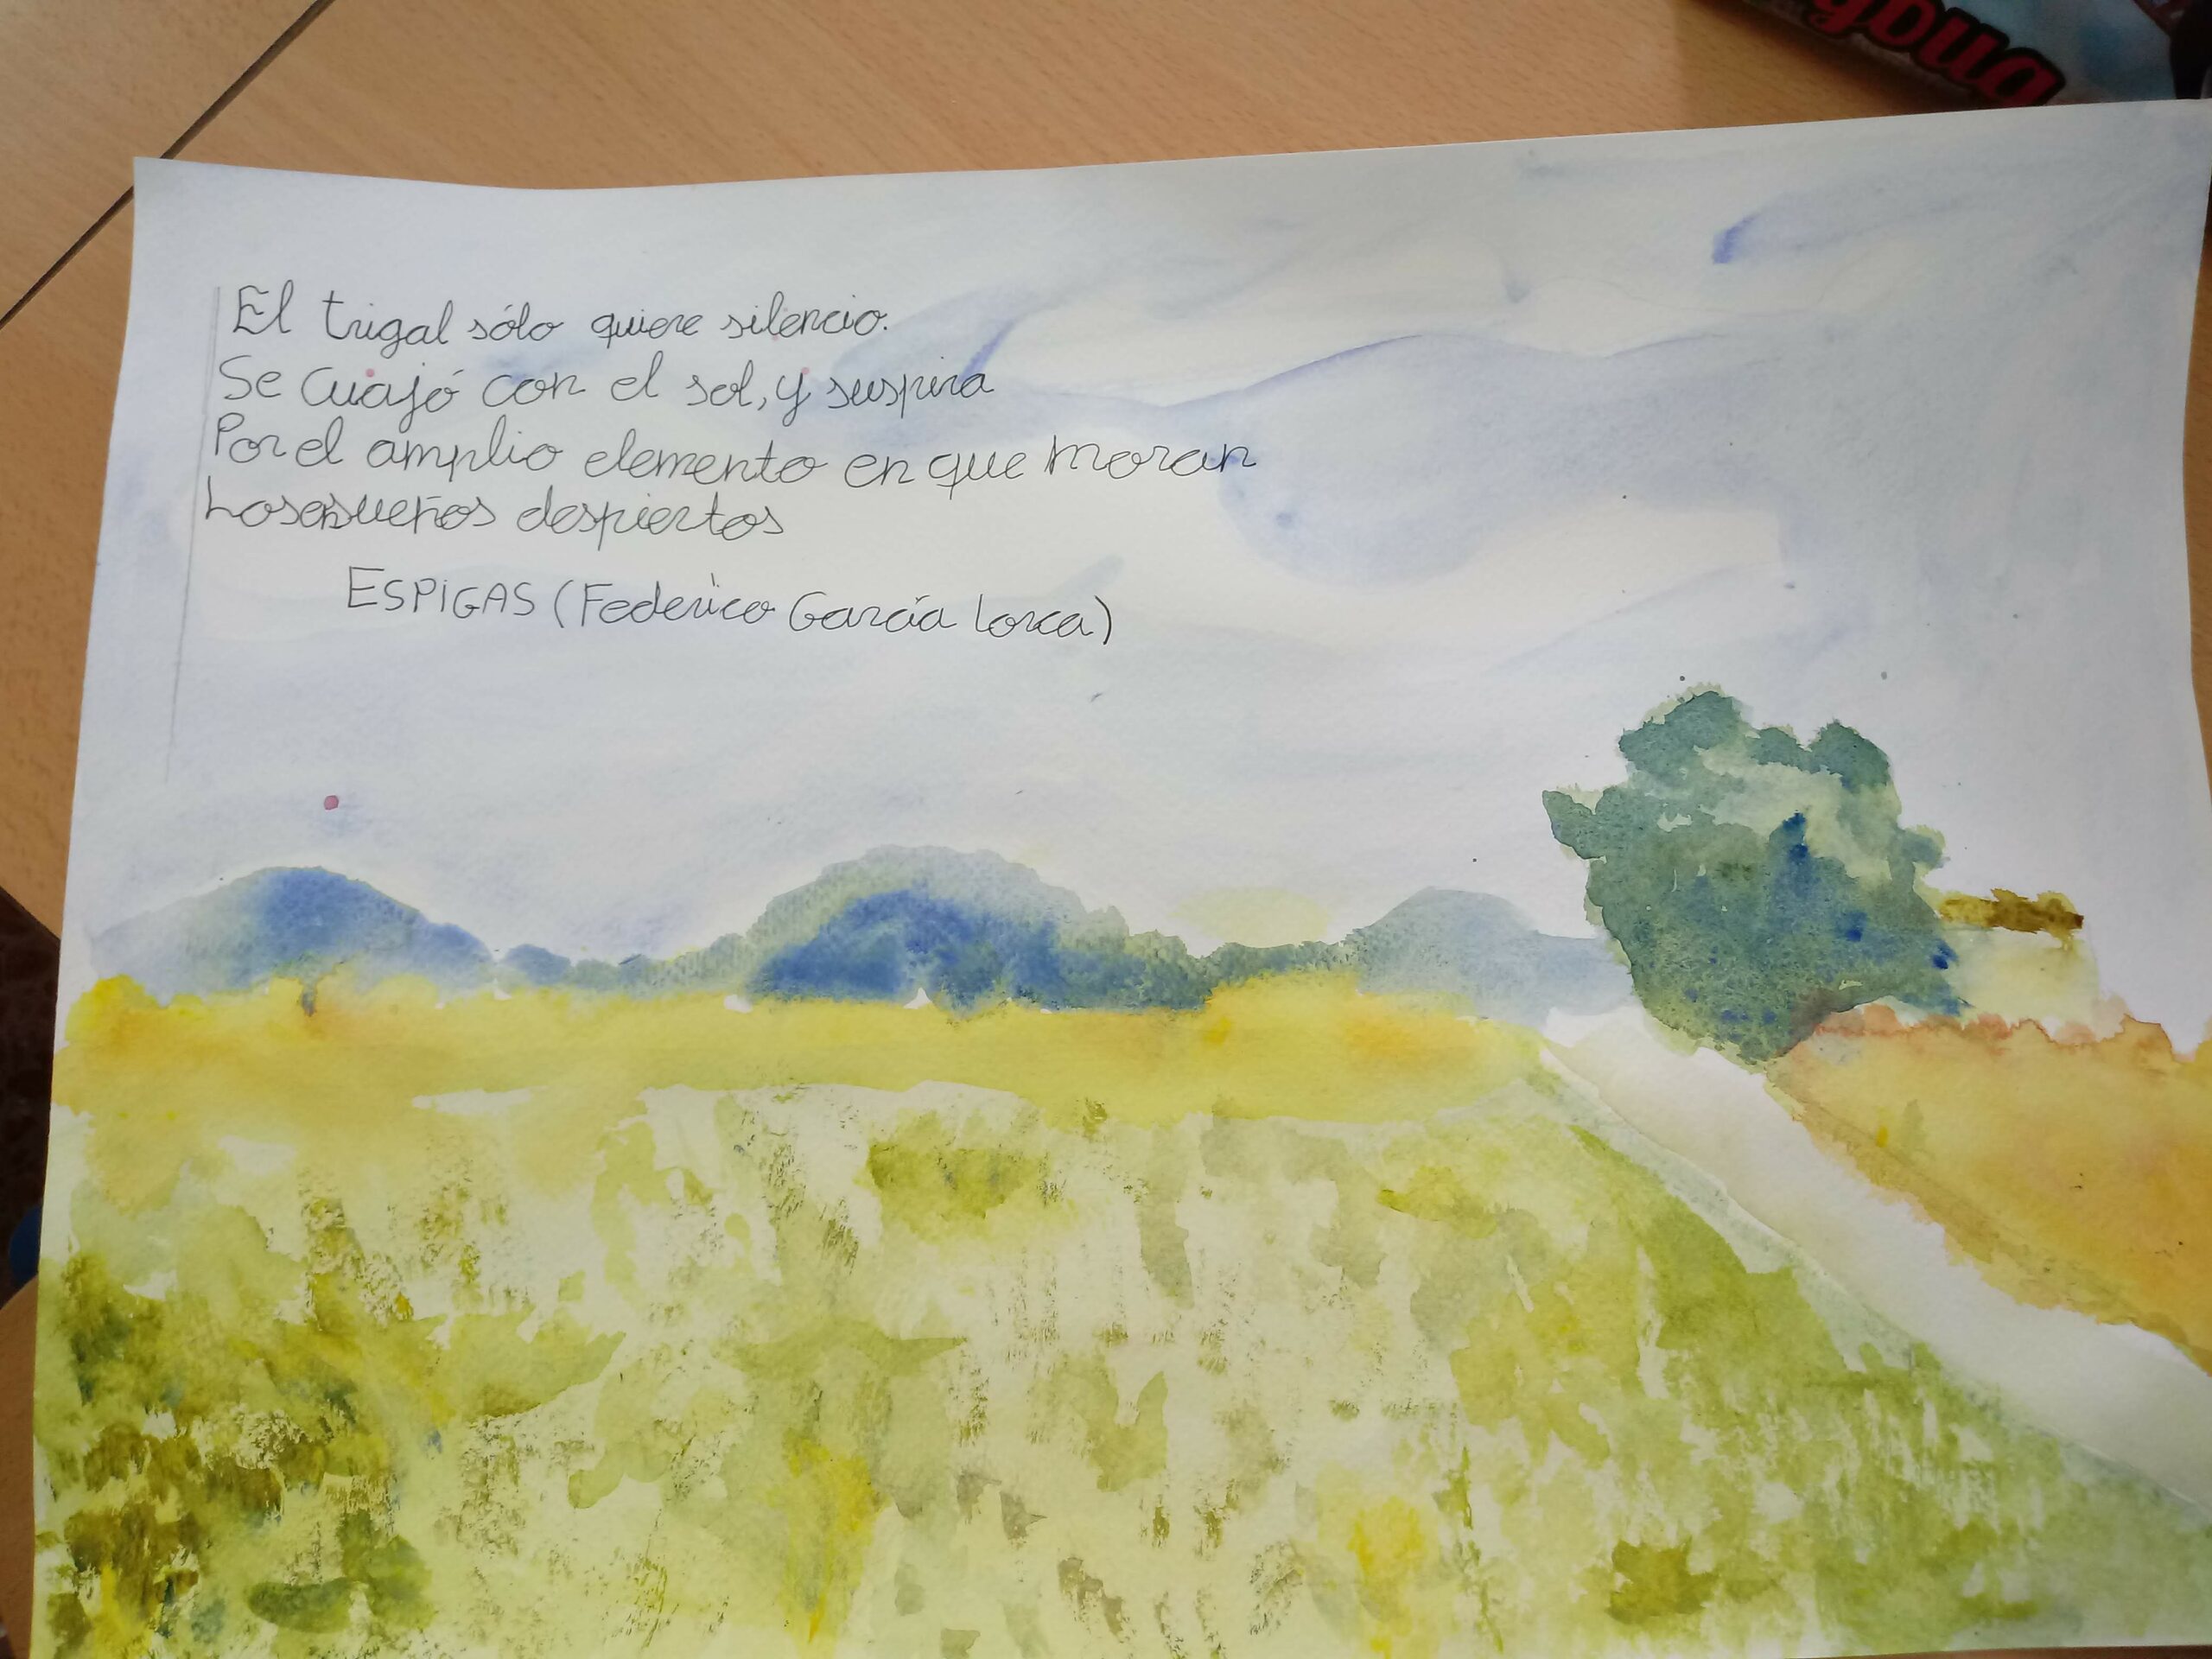 El trigal sólo quiere silencio.
Se cuajó con el sol, y suspira
Por el amplio elemento en que moran
Los ensueños despiertos
ESPIGAS (Federico García Lorca)